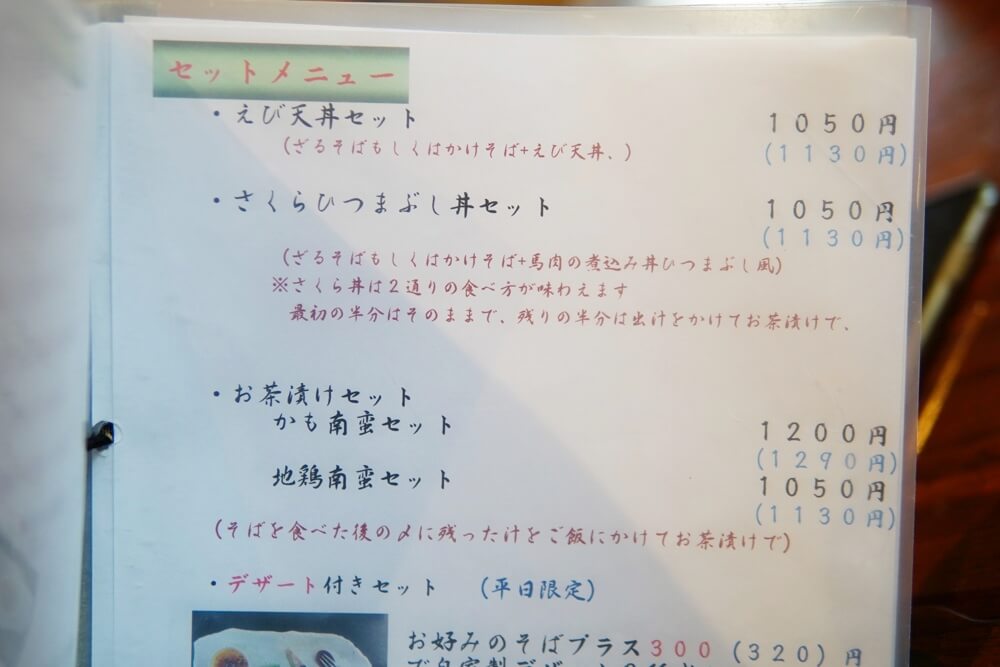 セットメニュー
・えび天丼セット 1050円
(1130円)
(ざるそばもしくはかけそば+えび天丼、)
・さくらひつまぶし丼セット 1050円
(1130円)
(ざるそばもしくはかけそば+馬肉の煮込み丼ひつまぶし風)
※さくら丼は2通りの食べ方が味わえます
最初の半分はそのままで、残りの半分は出汁をかけてお茶漬けで、
・お茶漬けセット
かも南蛮セット 1200円
(1290円)
地鶏南蛮セット 1050円
(1130円)
(そばを食べた後の〆に残った汁をご飯にかけてお茶漬けで)
・デザート付きセット (平日限定)
お好みのそばプラス300(320)円